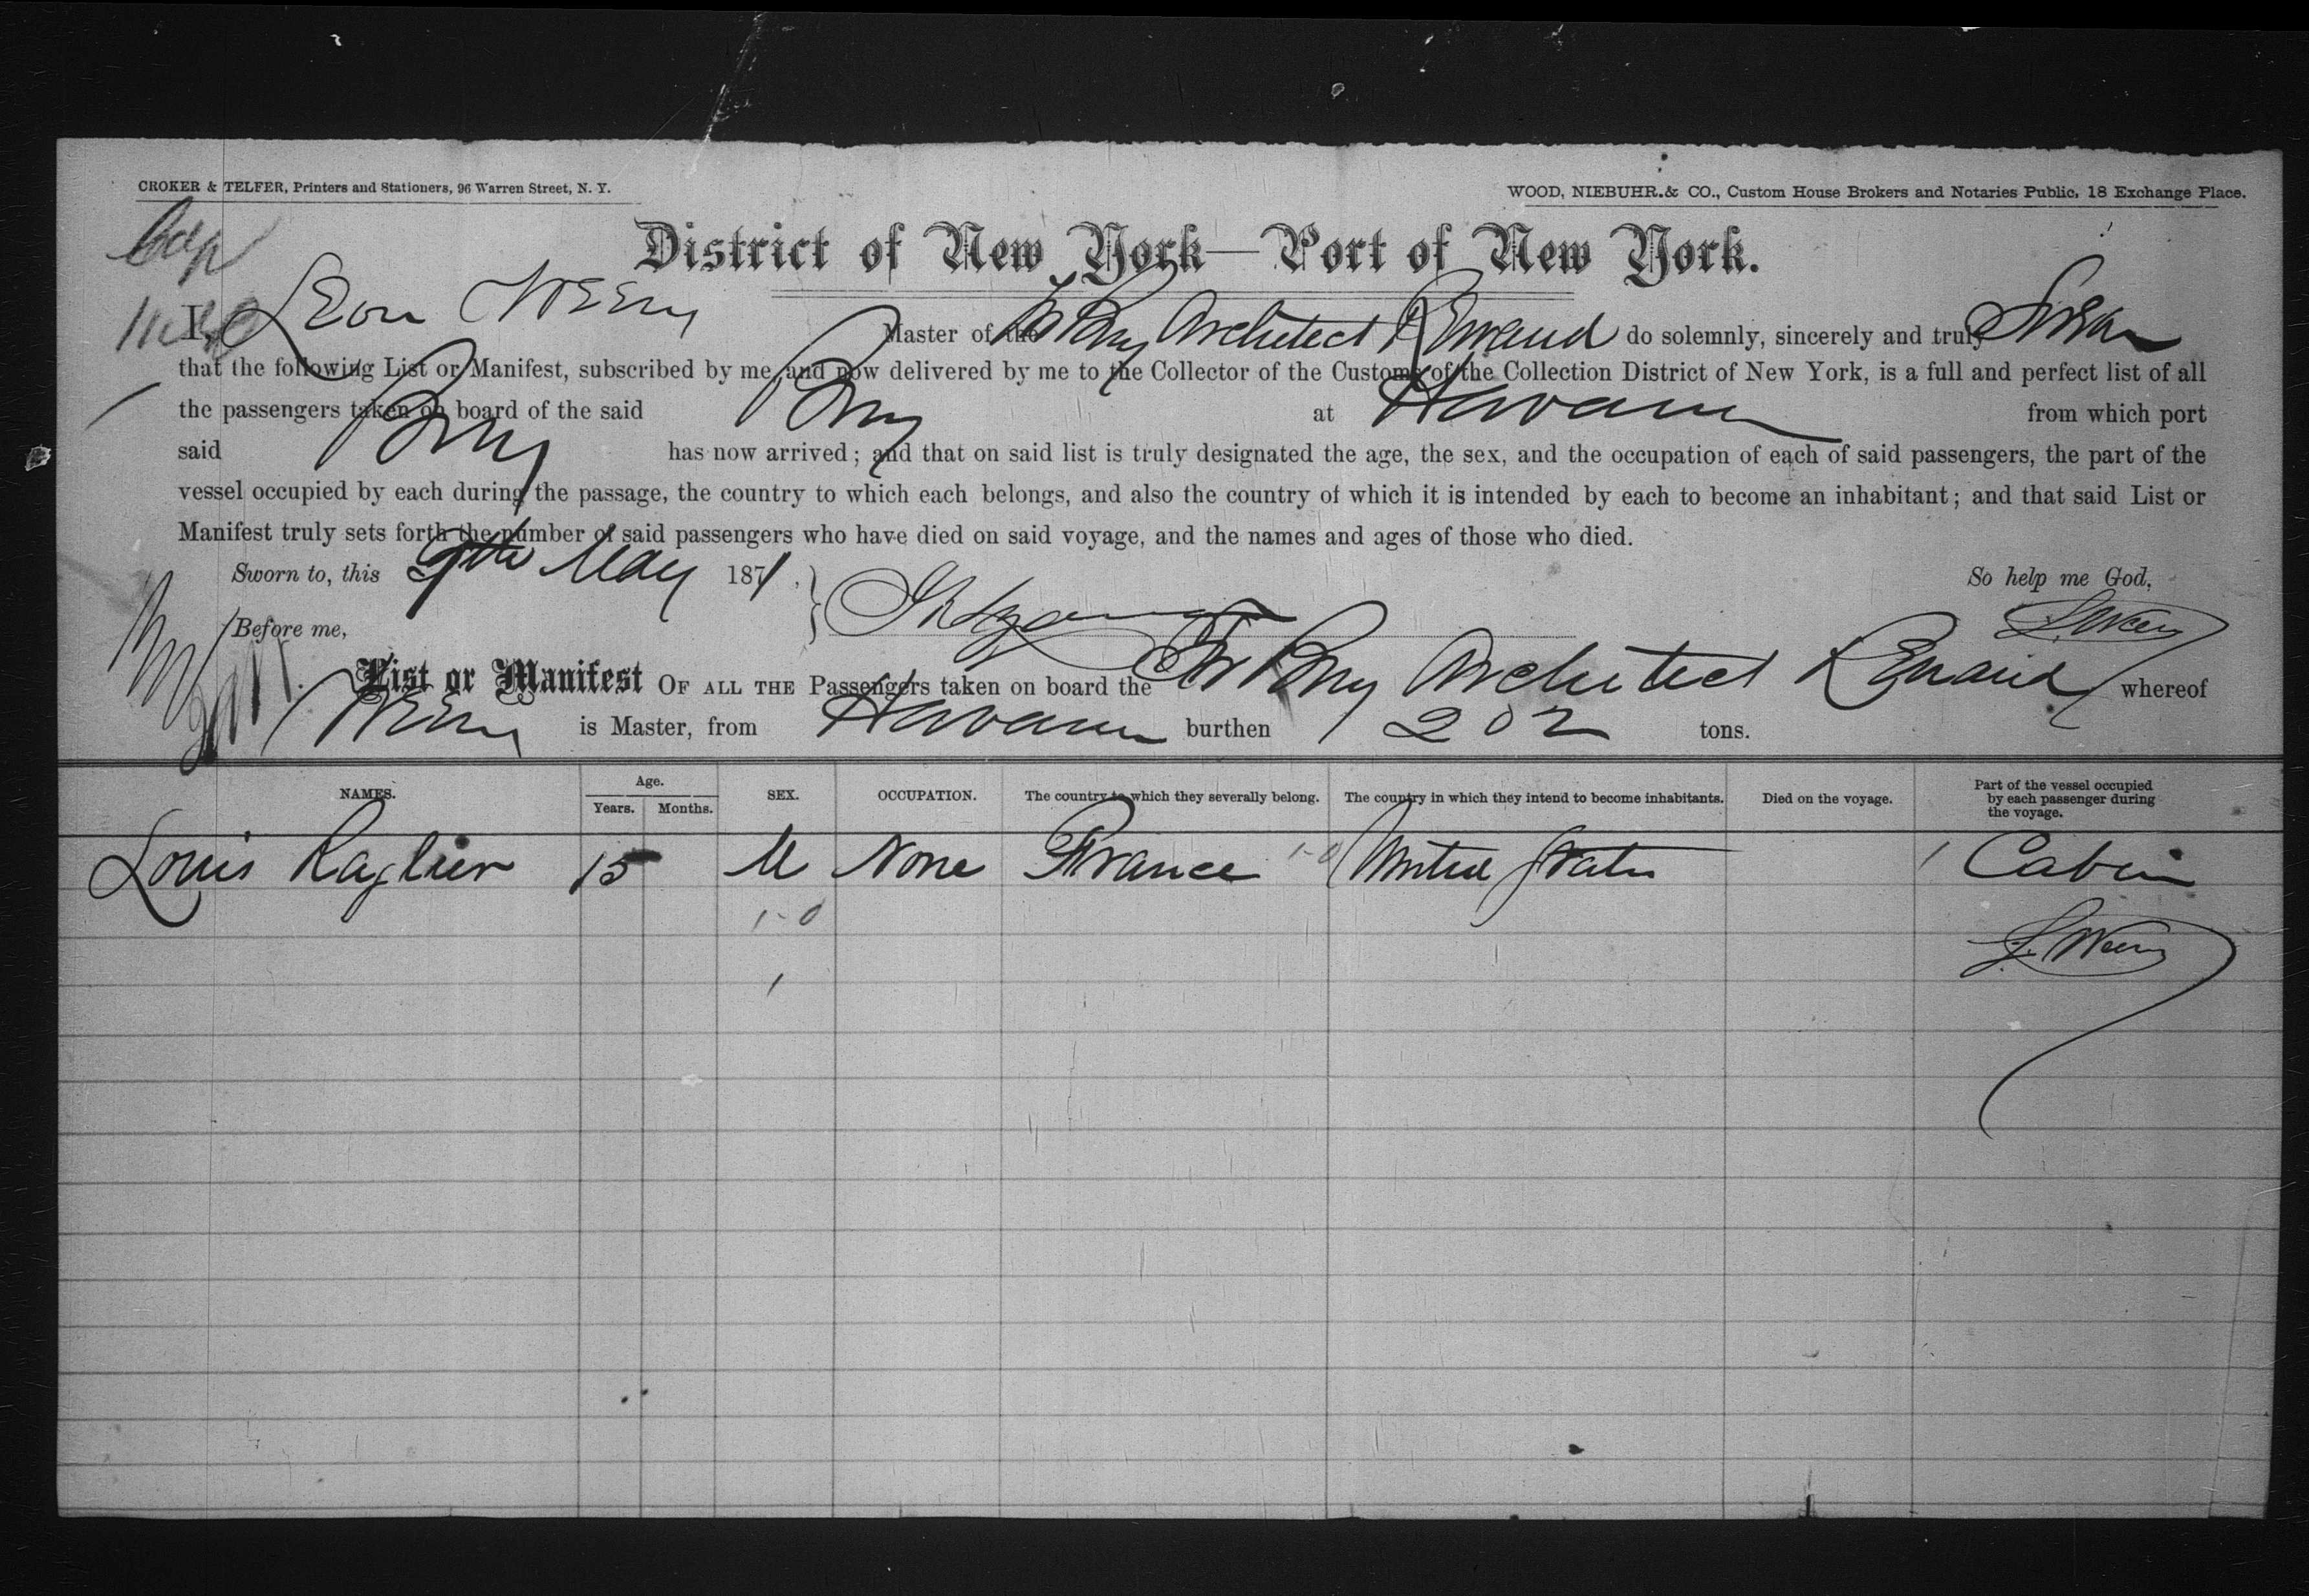 CROKER & TELFER, Printers and Stationers, 96 Warren Street, N. Y.
WOOD, NIEBUHR & CO., Custom House Brokers and Notaries Public, 18 Exchange Place.
District of New York—Port of New York.
I, Leon Weeny Master of the Fr Brig Architect Renaud do solemnly, sincerely and truly Swear
that the following List or Manifest, subscribed by me, and now delivered by me to the Collector of the Customs of the Collection District of New York, is a full and perfect list of all
the passengers taken on board of the said Brig at Havana from which port
said Brig has now arrived; and that on said list is truly designated the age, the sex, and the occupation of each of said passengers, the part of the
vessel occupied by each during the passage, the country to which each belongs, and also the country of which it is intended by each to become an inhabitant; and that said List or
Manifest truly sets forth the number of said passengers who have died on said voyage, and the names and ages of those who died.
Sworn to, this 9th May 1871. So help me God,
Before me,
List or Manifest OF ALL THE Passengers taken on board the Fr Brig Architect Renaud whereof
is Master, from Havana burthen 202 tons.
NAMES. Age. Years. Months. SEX. OCCUPATION. The country to which they severally belong. The country in which they intend to become inhabitants. Died on the voyage. Part of the vessel occupied by each passenger during the voyage.
Louis Raglier 15 M None France 1-0 United States 1 Cabin
1-0
1